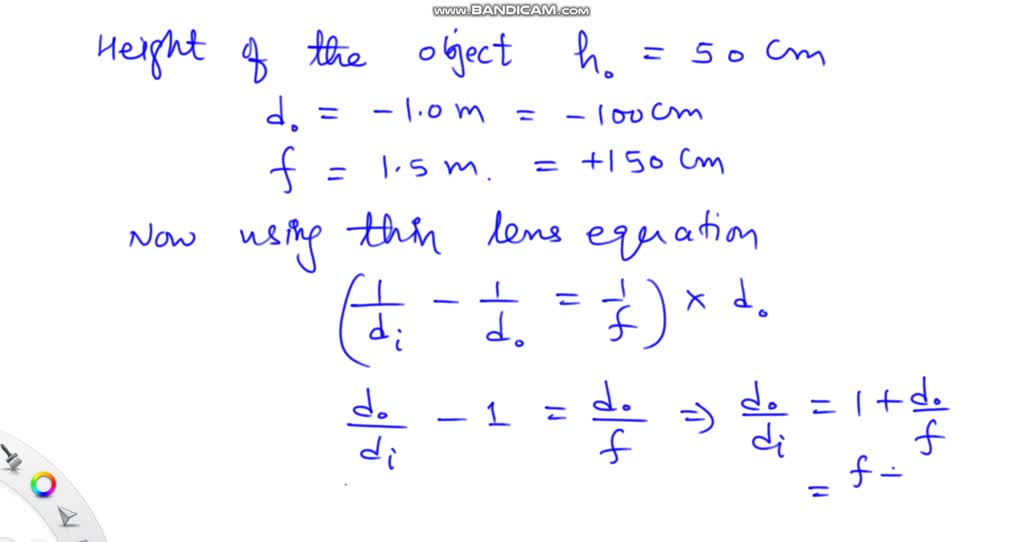 www.BANDICAM.com
Height of the object h₀ = 50 cm
d₀ = -1.0 m = -100 cm
f = 1.5 m. = +150 cm
Now using thin lens equation
(1/dᵢ - 1/d₀ = 1/f) × d₀
d₀/dᵢ - 1 = d₀/f ⇒ d₀/dᵢ = 1 + d₀/f
= f -